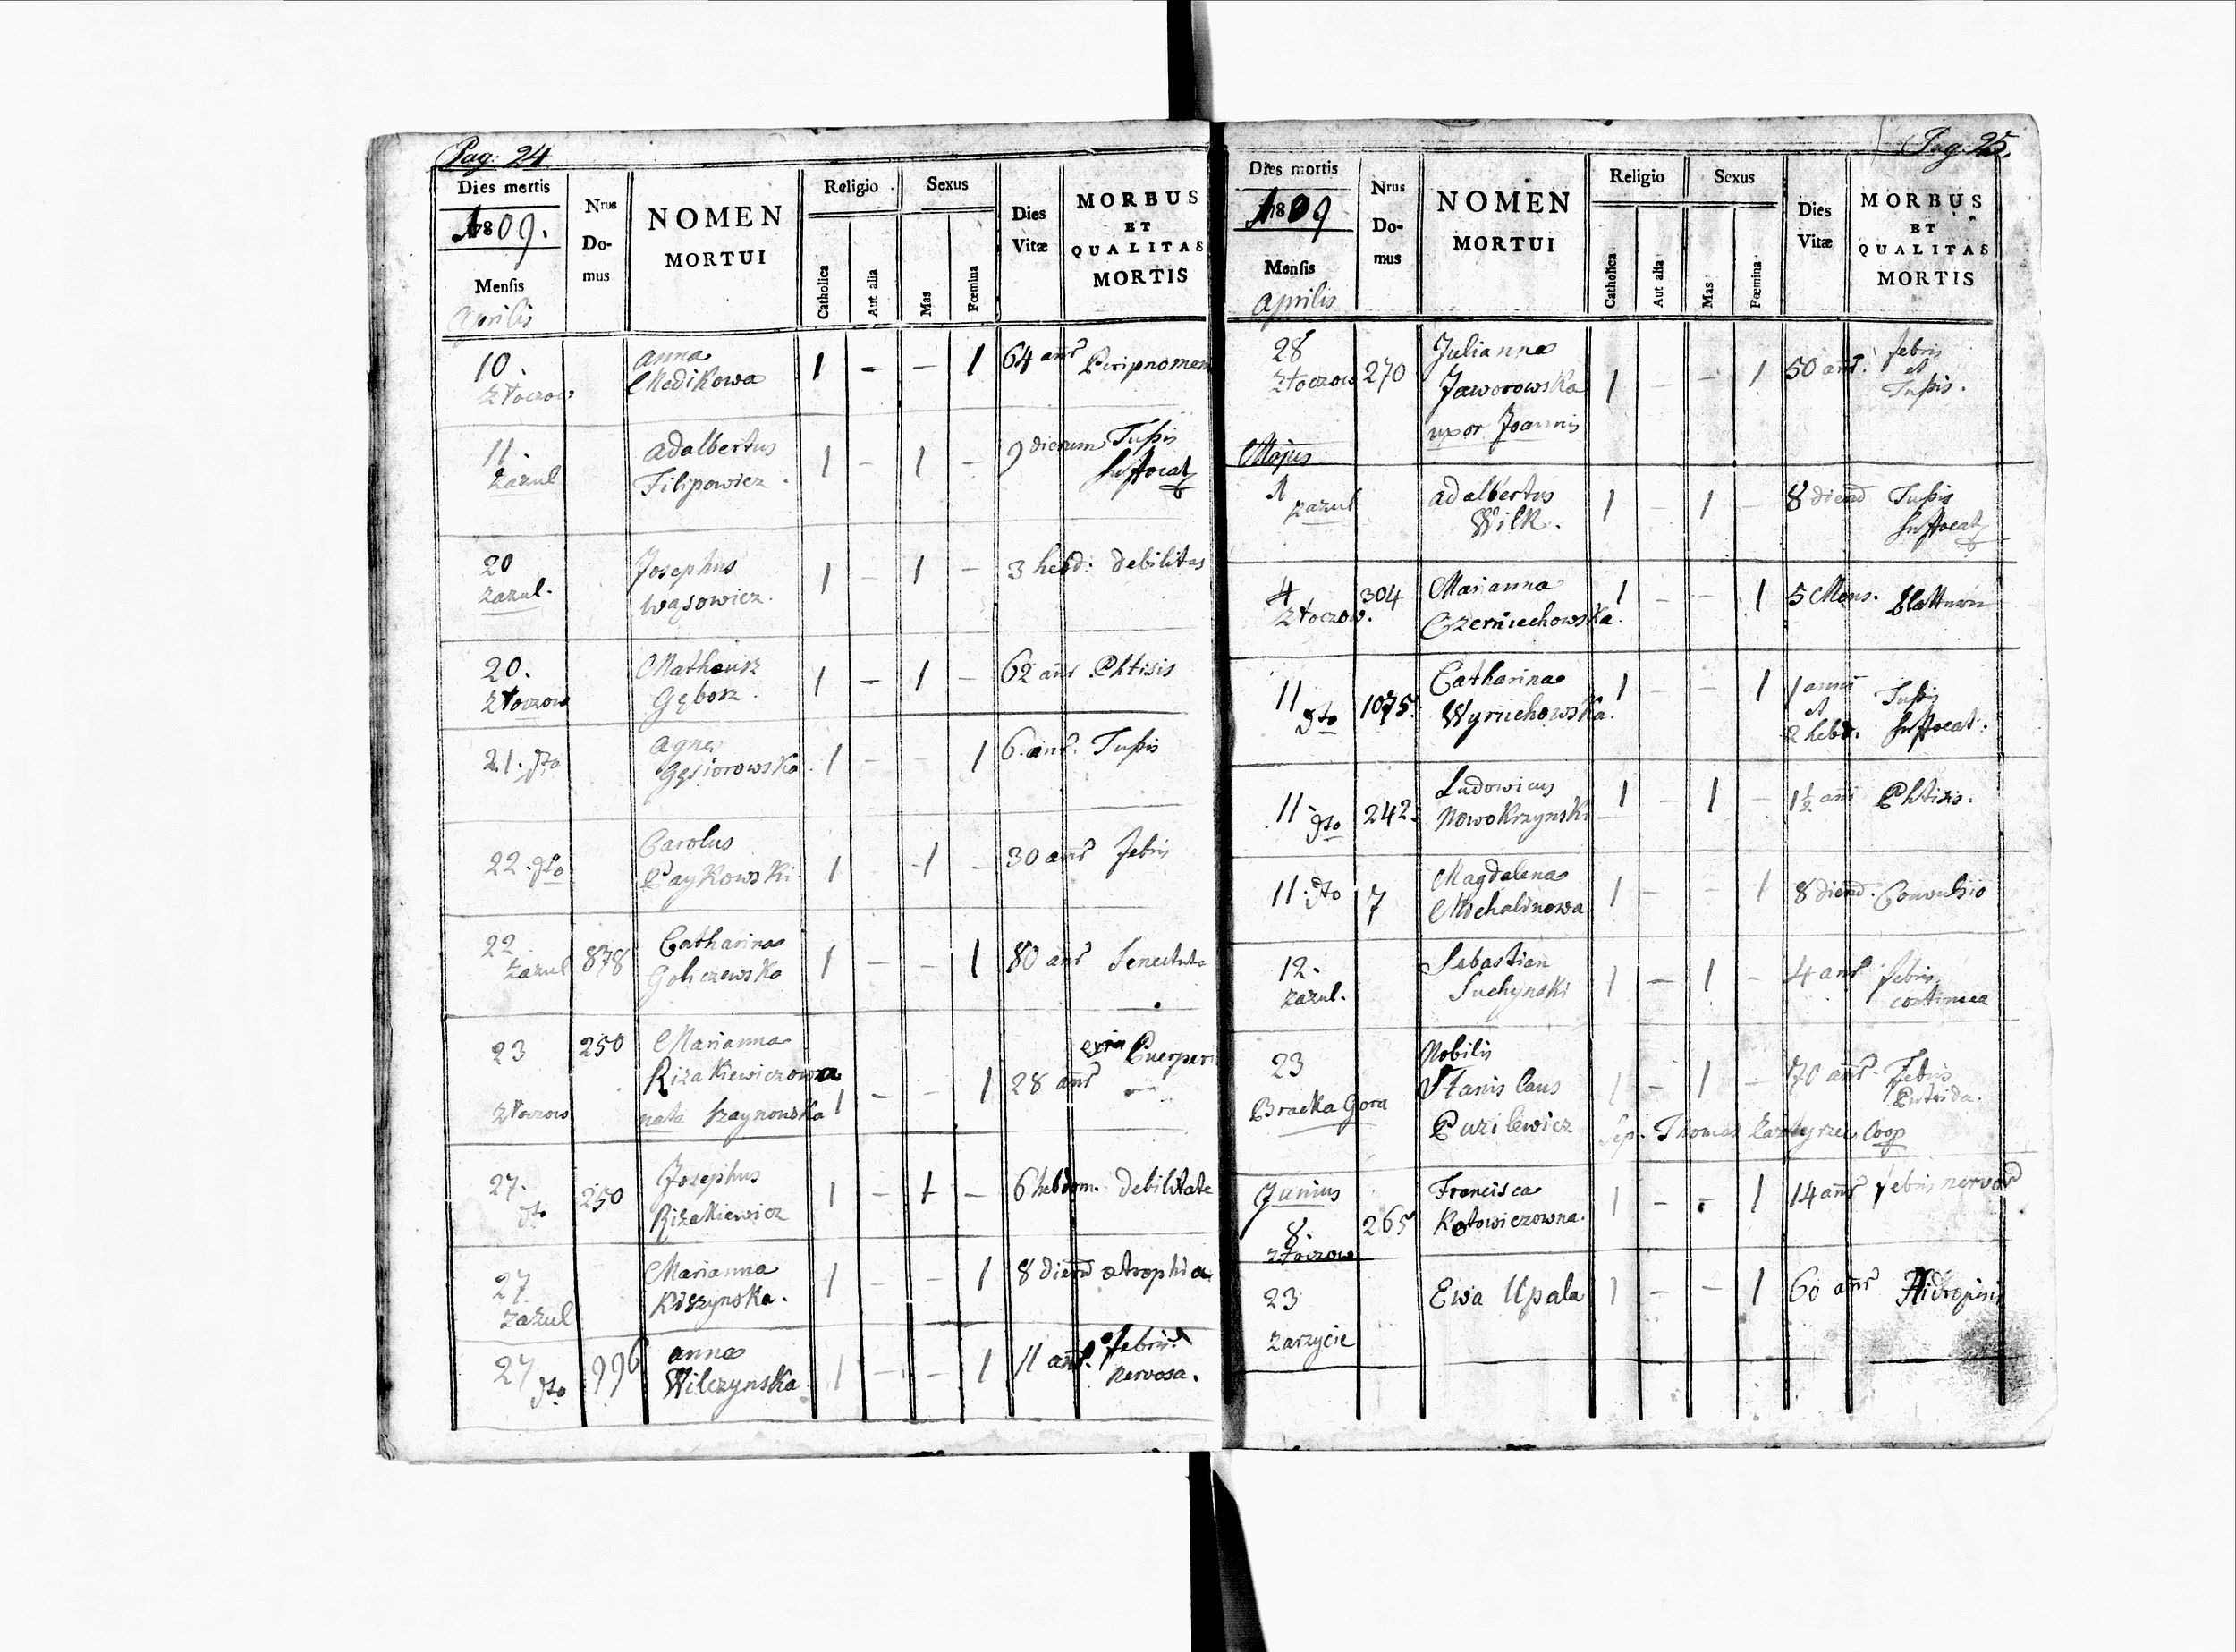 Pag: 24
Dies mertis
1809.
Mensis
Aprilis
Nrus
Do-
mus
NOMEN
MORTUI
Religio
Catholica
Aut alia
Sexus
Mas
Fœmina
Dies
Vitæ
MORBUS
ET
QUALITAS
MORTIS
10. Anna 1 - - 1 64 anr
Złoczow Medikowa
11. Adalbertus 1 - 1 - 9 dierum Tussis
Zazul Filipowicz. suffocat
20 Josephus 1 - 1 - 3 hebd: debilitas
Zazul. Wąsowicz.
20. Matheusz 1 - 1 62 anr. Phtisis
Złoczow Gębosz.
21. dto Agnes 1 - - 1 6. anr. Tussis
Gęsiorowska
22. dto Carolus 1 - 1 - 30 anr febris
Paykowski.
22 878 Catharina 1 - - 1 80 anr Senectute
Zazul Goliczewska
23 250 Marianna
Rizakiewiczowa 1 - - 1 28 anr Puerperi
Złoczow nata Szaynowska
27. 250 Josephus 1 - 1 - 6 hebdom. debilitate
dto Rizakiewicz
27 Marianna 1 - - 1 8 dierum atrophia
Zazul Kiszynska.
27 dto 996 Anna 1 - - 1 11 anr. febris
Wilczynska nervosa.
Pag. 25.
Dies mortis
1809
Mensis
Aprilis
Nrus
Do-
mus
NOMEN
MORTUI
Religio
Catholica
Aut alia
Sexus
Mas
Fœmina
Dies
Vitæ
MORBUS
ET
QUALITAS
MORTIS
28 270 Julianna febris
Złoczow Jaworowska 1 - - 1 50 anr. et
uxor Joannis Tussis.
Majus
1 Adalbertus 1 - 1 - 8 dierum Tussis
Zazul Wilk. suffocat
4 304 Marianna 1 - - 1 5 Mens.
Złoczow. Czerniechowska.
11 dto 1075. Catharina 1 - - 1 1 anni Tussis
Wyruchowska. et
2 hebd. suffocat.
11 dto 242. Ludowicus 1 - 1 - 1½ ani Phtisis.
Nowokrzynski
11. dto 7 Magdalena 1 - - 1 8 dierum. Convulsio
Michalinowa
12. Sebastian 1 - 1 - 4 anr febris
Zazul. Suchynski continua
23 Nobilis
Stanislaus 1 - 1 - 70 anr. Febris
Putrida.
Bracka Gora Puzilewicz Sep. Thomas Coop
Junius Francisca 1 - - 1 14 anr febris nervosa
8. 265 Kotowiczowna.
Złoczow
23 Ewa Upala 1 - - 1 60 anr Hidropisis
Zarzycie